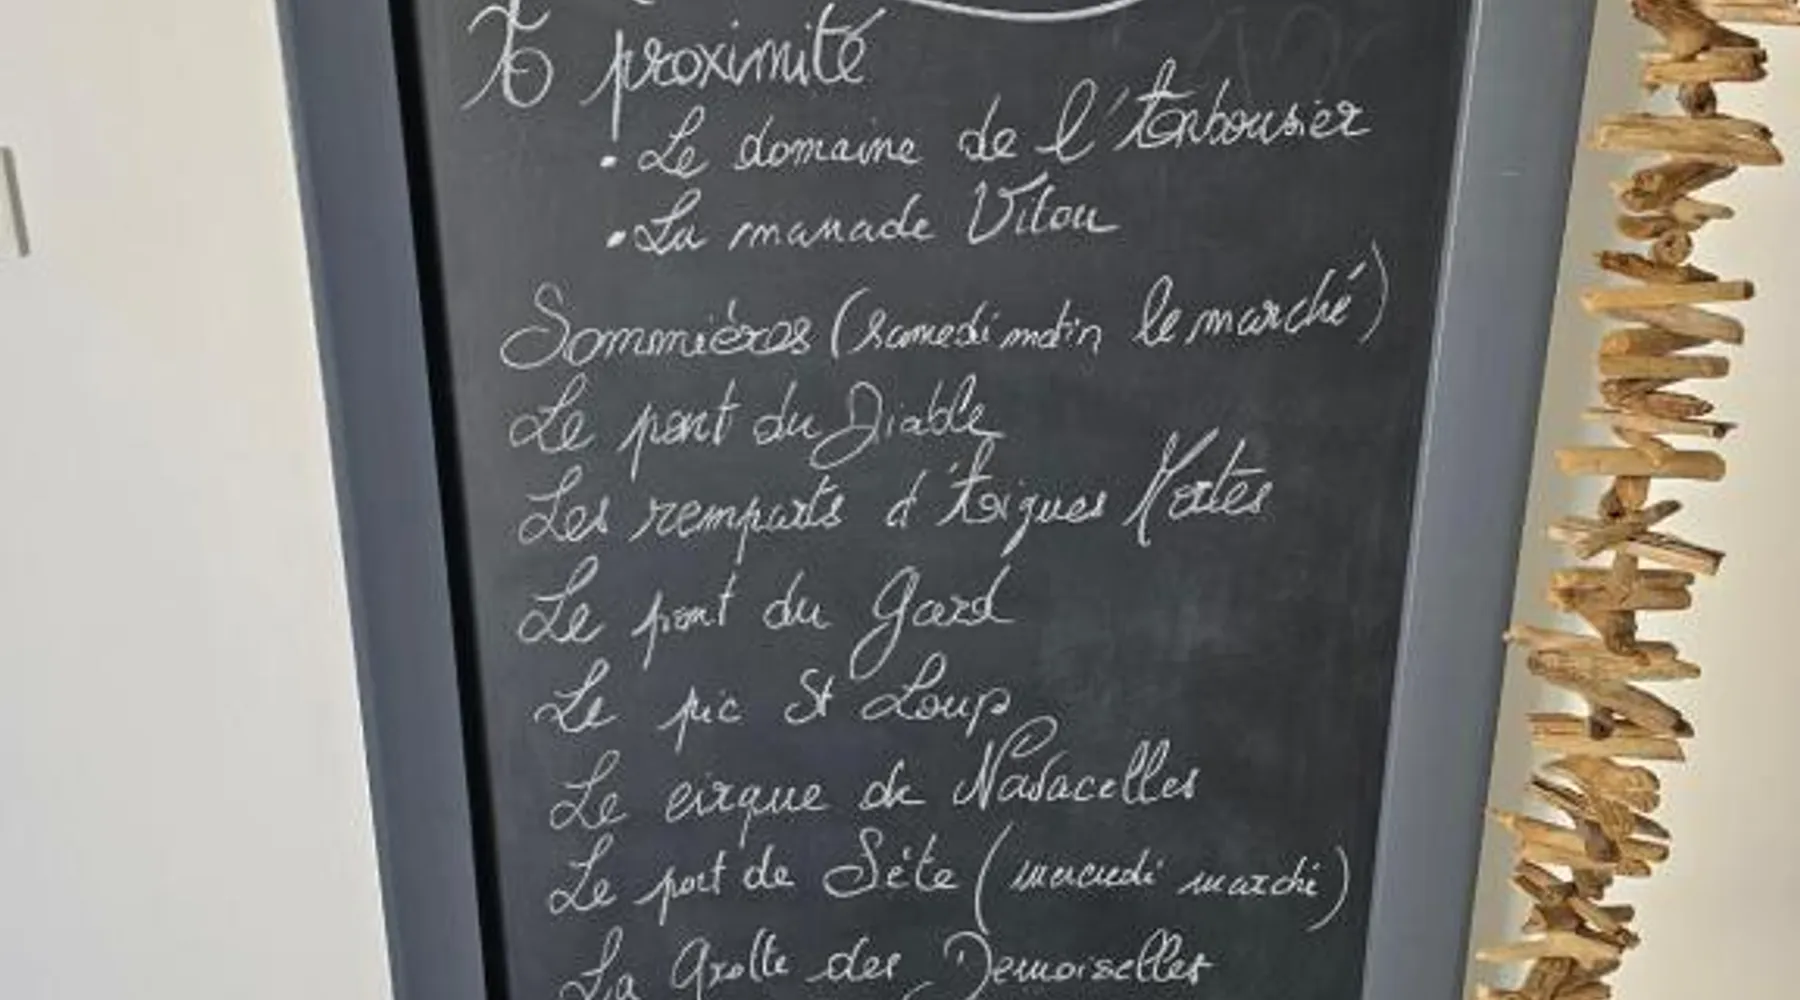 A proximité
• Le domaine de l'Arbousier
• La manade Vitou
Sommières (samedi matin le marché)
Le pont du Diable
Les remparts d'Aigues Mortes
Le pont du Gard
Le pic St Loup
Le cirque de Navacelles
Le port de Sète (mercredi marché)
La Grotte des Demoiselles